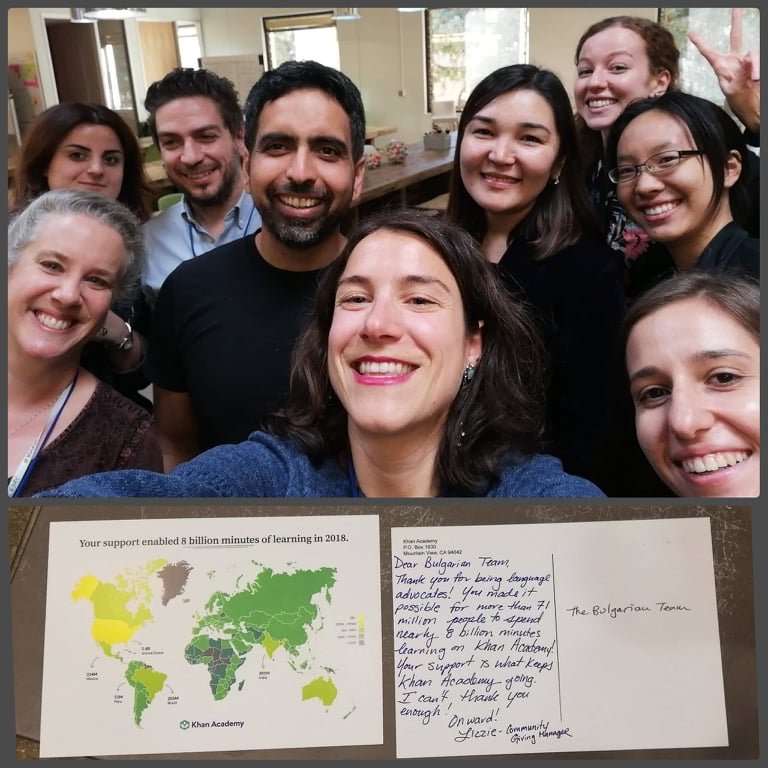 Your support enabled 8 billion minutes of learning in 2018.
1.4B
United States
314M
Mexico
Peru
Brazil
India
Khan Academy
Khan Academy
P.O. Box 1630
Mountain View, CA 94042
Dear Bulgarian Team,
Thank you for being language
advocates! You made it
possible for more than 71
million people to spend
nearly 8 billion minutes
learning on Khan Academy!
Your support is what keeps
Khan Academy going.
I can't thank you
enough!
Onward!
Lizzie - Community
Giving Manager
The Bulgarian Team